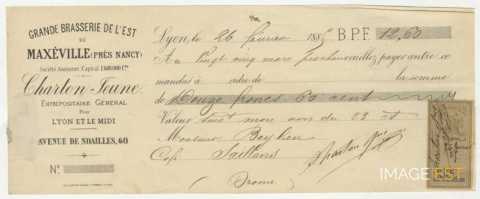 GRANDE BRASSERIE DE L'EST
DE
MAXÉVILLE (PRÈS NANCY)
Charton Jeune
ENTREPOSITAIRE GÉNÉRAL
Pour
LYON ET LE MIDI
AVENUE DE NOAILLES, 60
No
Lyon, le 26 février 188 B.P.F. 12,60
Au vingt cinq mars prochain veuillez payer contre ce
mandat à ordre de la somme
de Douze francs 60 cent
Valeur mon avis du 22 ct
Monsieur
Café Saillans
(Drome)
Charton Jne
IMAGE'EST